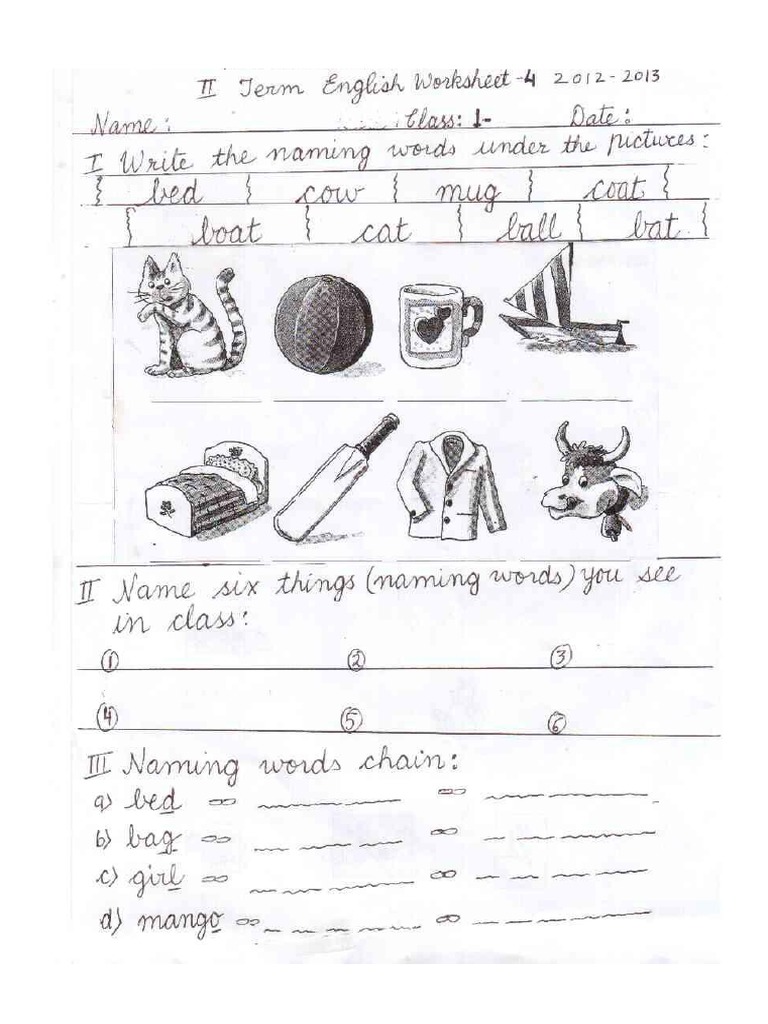 II Term English Worksheet-4 2012-2013
Name: Class: 1- Date:
I Write the naming words under the pictures:
bed cow mug coat
boat cat ball bat
II Name six things (naming words) you see
in class:
① ② ③
④ ⑤ ⑥
III Naming words chain:
a) bed
b) bag
c) girl
d) mango